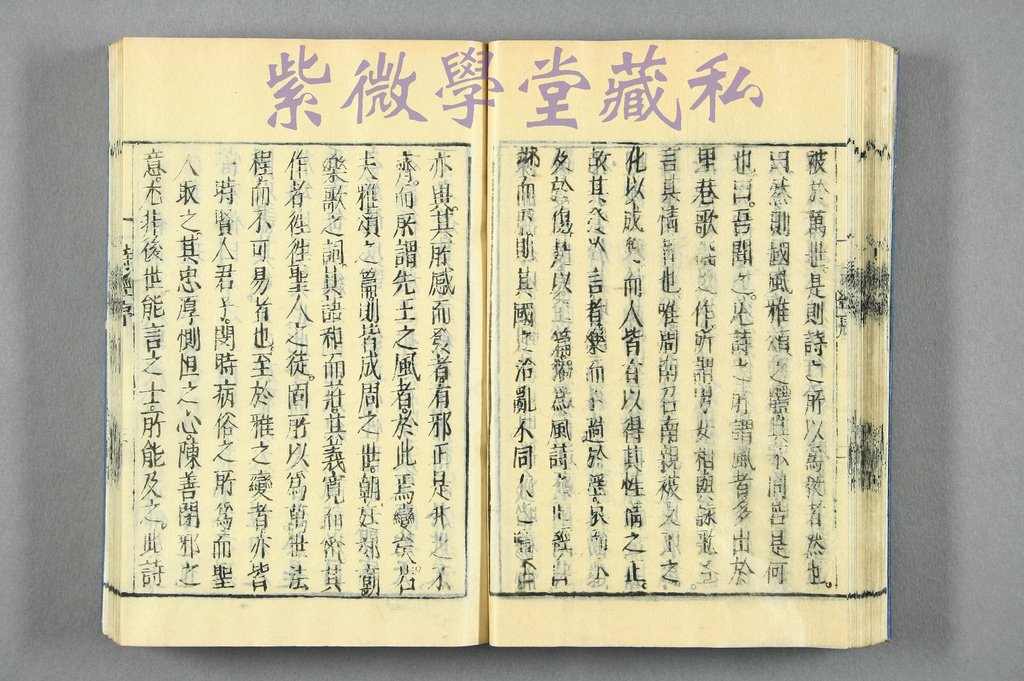 紫微學堂藏私
被於萬世是則詩之所以爲教者然也。
曰然則國風雅頌之體其不同若是何
也曰。吾聞之。凡詩之所謂風者多出於
里巷歌謠之作。所謂男女相與詠歌各
言其情者也。唯周南召南親被文王之
化以成德而人皆有以得其性情之正。
故其發於言者樂而不過於淫。哀而不
及於傷。是以二篇獨爲風詩之正經。自
邶而下。則其國之治亂不同。人之賢否
亦異。其所感而發者有邪正是非之不
齊。而所謂先王之風者。於此焉變矣。若
夫雅頌之篇。則皆成周之世。朝廷郊廟
樂歌之詞。其語和而莊。其義寬而密。其
作者往往聖人之徒。固所以爲萬世法
程而不可易者也。至於雅之變者亦皆
一時賢人君子。閔時病俗之所爲。而聖
人取之。其忠厚惻怛之心。陳善閉邪之
意。尤非後世能言之士。所能及之。此詩